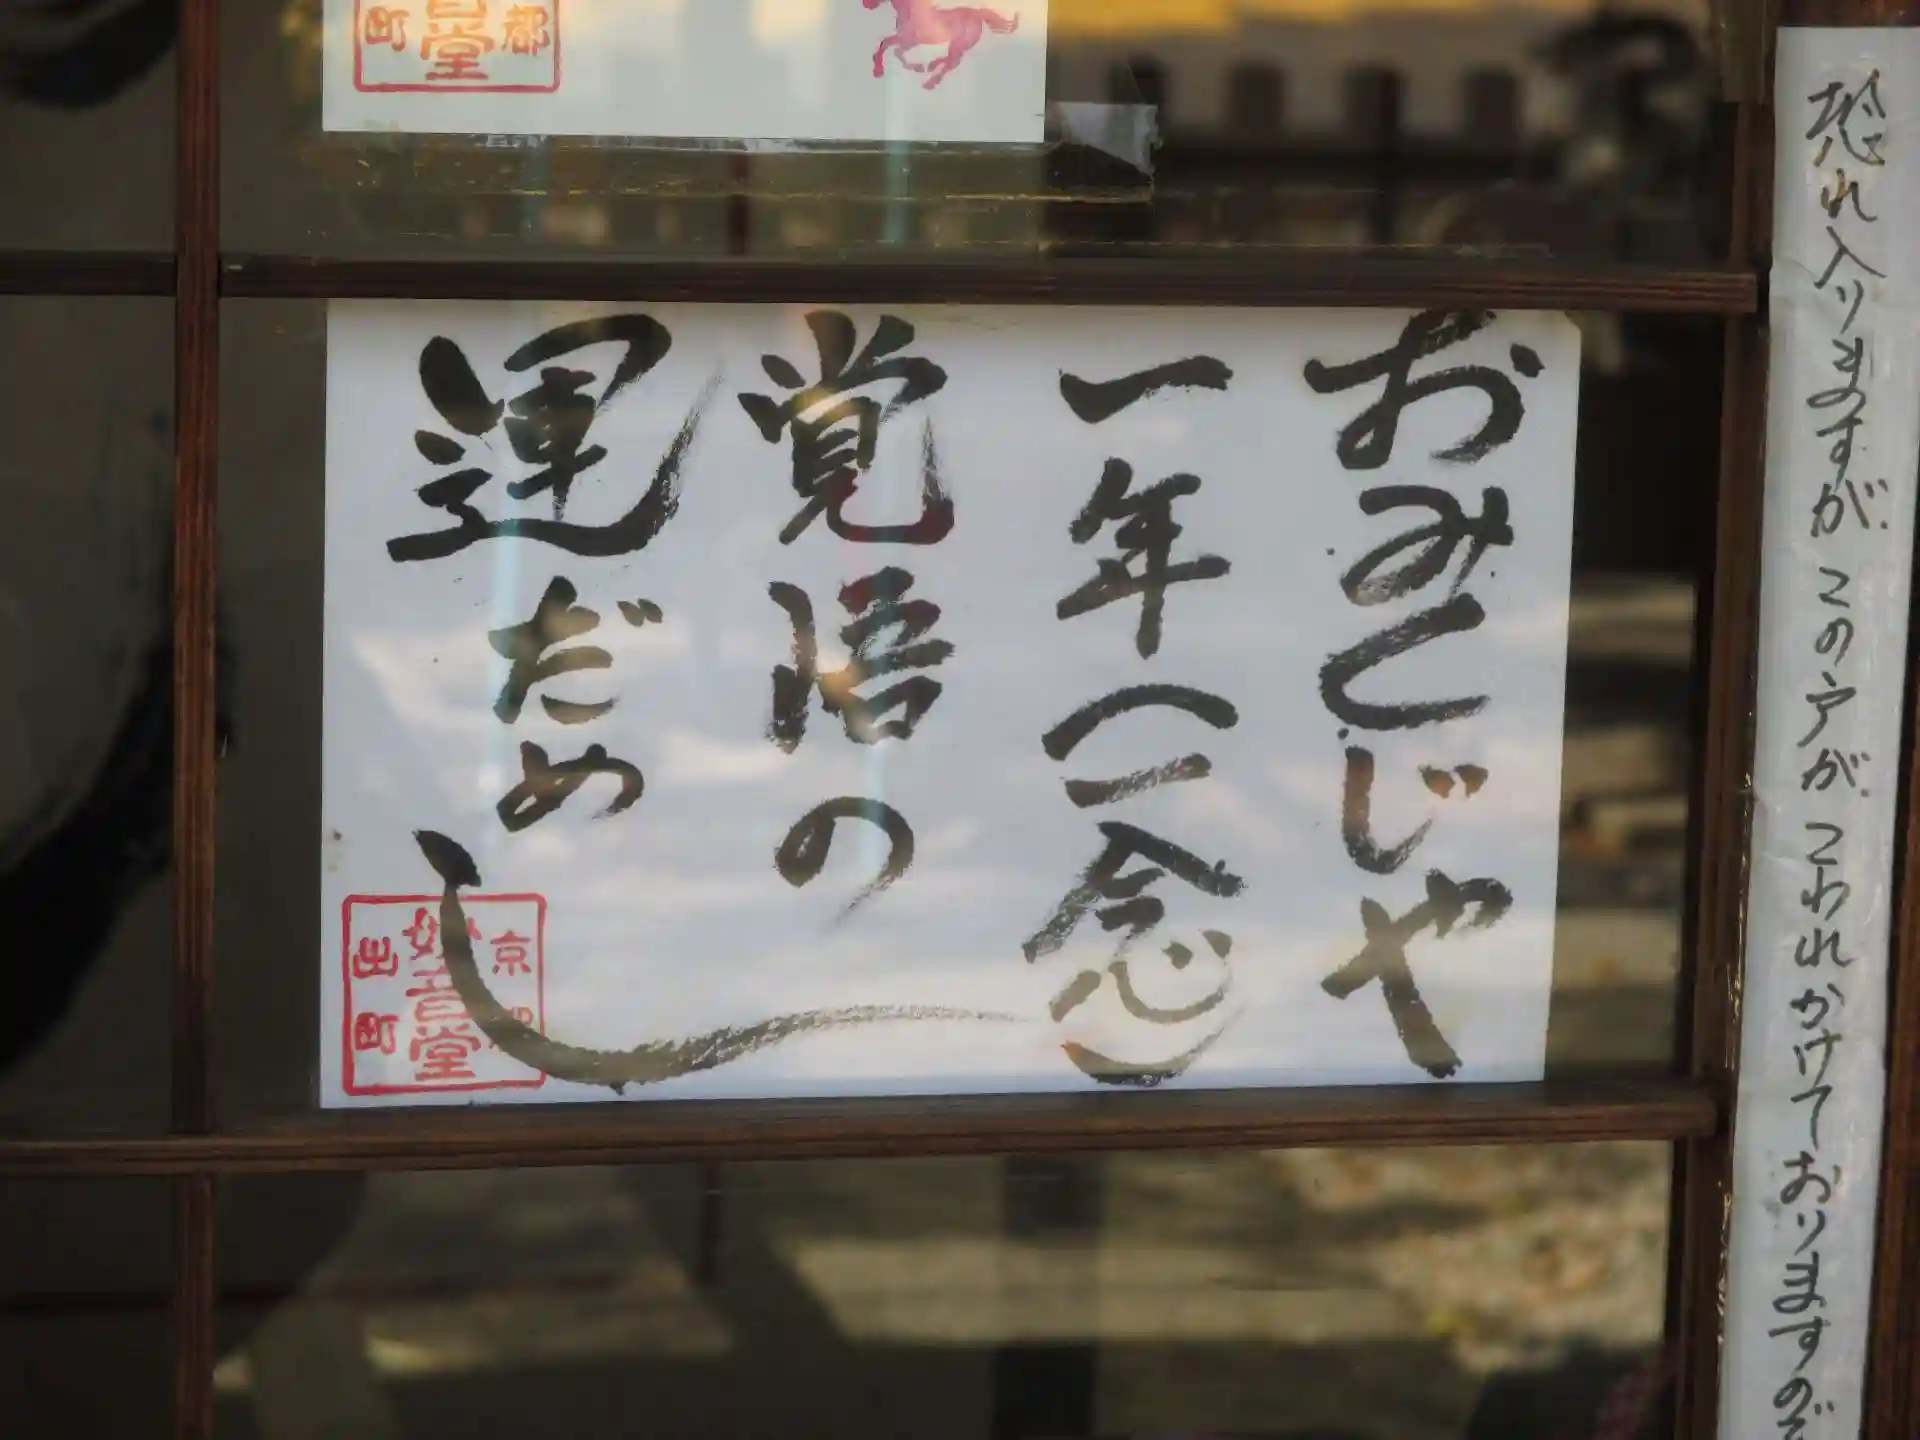 恐れ入りますがこの戸がこわれかけておりますので
おみくじや
一年(一念)
覚悟の
運だめし
京都
妙音堂
出町
都
音堂
町